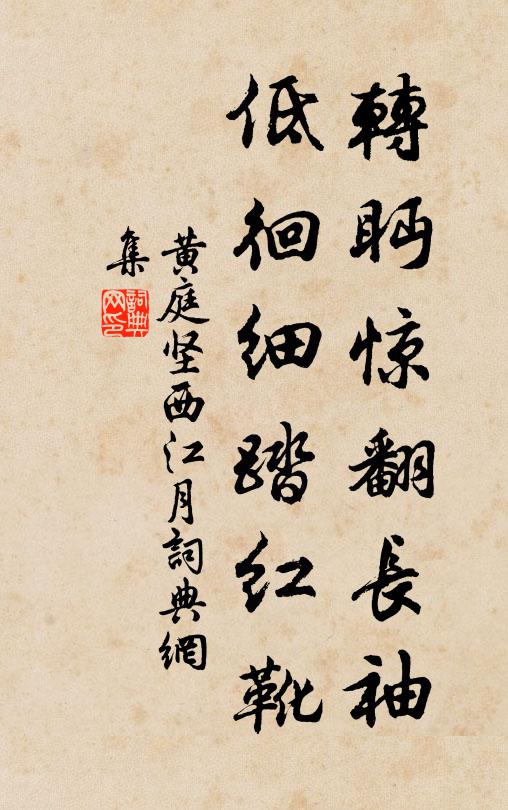 轉眄惊翻長袖
低徊细踏红靴
黄庭坚西江月詞典網
集
詞典网印